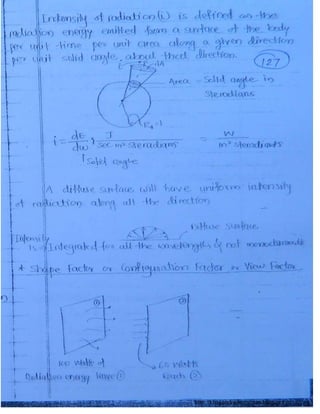 Intensity of radiation (i) is defined as the
radiation energy emitted from a surface of the body
per unit time per unit area along a given direction
per unit solid angle about that direction.
127
Area - Solid angle in
Steradians
i = dE/dω, J/sec m² steradians = W/m² steradians
Solid angle
A diffuse surface will have uniform intensity
of radiation along all the direction
Diffuse surface
Intensity
is → Integrated for all the wavelengths & not monochromatic
* Shape Factor or Configuration Factor or View Factor
① ②
100 watts of
Radiation energy leave ①
60 watts
reach ②